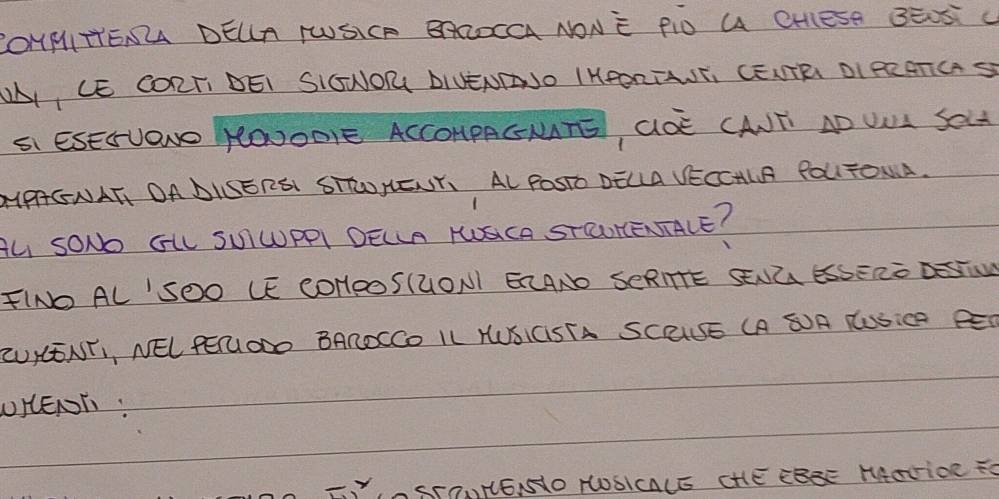 COMMITTENZA DELLA MUSICA BAROCCA NON È PIÙ LA CHIESA BENSÌ
LE CORTI DEI SIGNORI DIVENTANO IMPORTANTI CENTRI DI PRATICA
SI ESEGUONO MONODIE ACCOMPAGNATE, CIOÈ CANTI AD UNA SOLA
DA DIVERSI STRUMENTI AL POSTO DELLA VECCHIA POLIFONIA.
SONO GLI SVILUPPI DELLA MUSICA STRUMENTALE?
FINO AL '500 LE COMPOSIZIONI ERANO SCRITTE SENZA ESSERE
NEL PERIODO BAROCCO IL MUSICISTA SCRISSE LA SUA MUSICA PER
UMENTI:
STRUMENTO MUSICALE CHE EBBE MAGGIOR